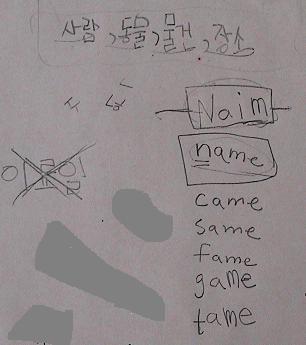 사람, 동물, 물건, 장소
Naim
name
came
same
fame
game
tame